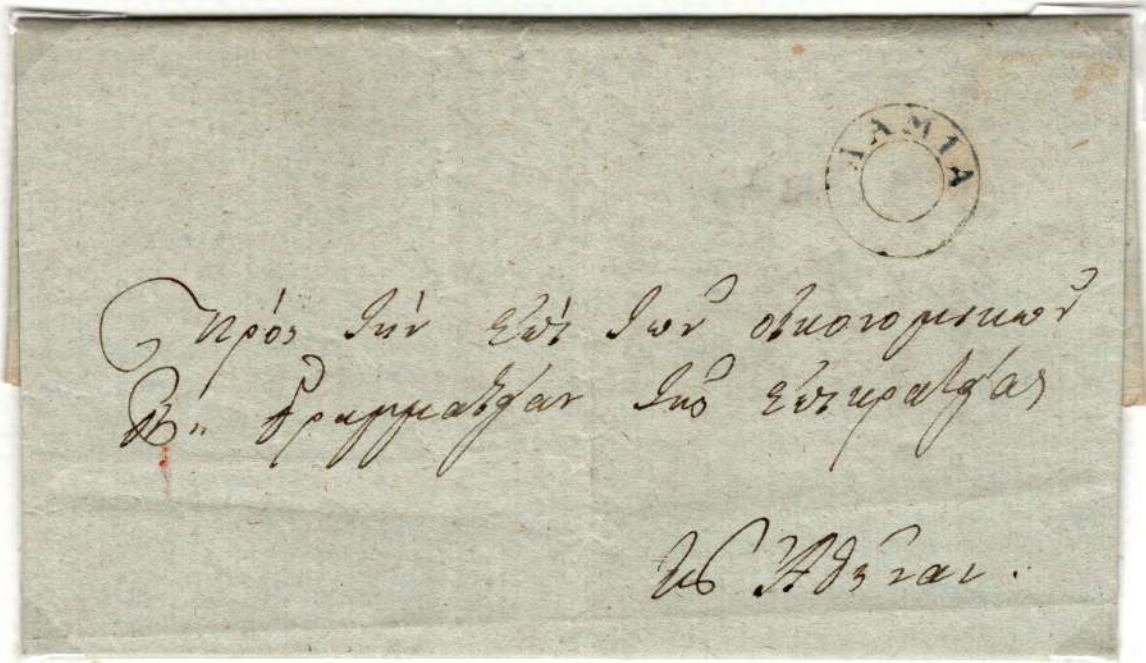 ΛΑΜΙΑ
Πρὸς τὴν ἐπὶ τῶν οἰκονομικῶν
Β. Γραμματείαν τῆς ἐπικρατείας
εἰς Ἀθήνας.